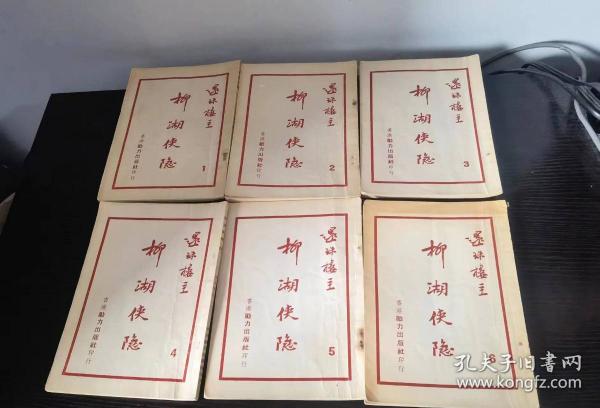 還珠樓主
柳湖俠隐
1
香港動力出版社印行
還珠樓主
柳湖俠隐
2
香港動力出版社印行
還珠樓主
柳湖俠隐
3
香港動力出版社印行
還珠樓主
柳湖俠隐
4
香港動力出版社印行
還珠樓主
柳湖俠隐
5
香港動力出版社印行
還珠樓主
柳湖俠隐
6
香港動力出版社印行
孔夫子旧书网
www.kongfz.com